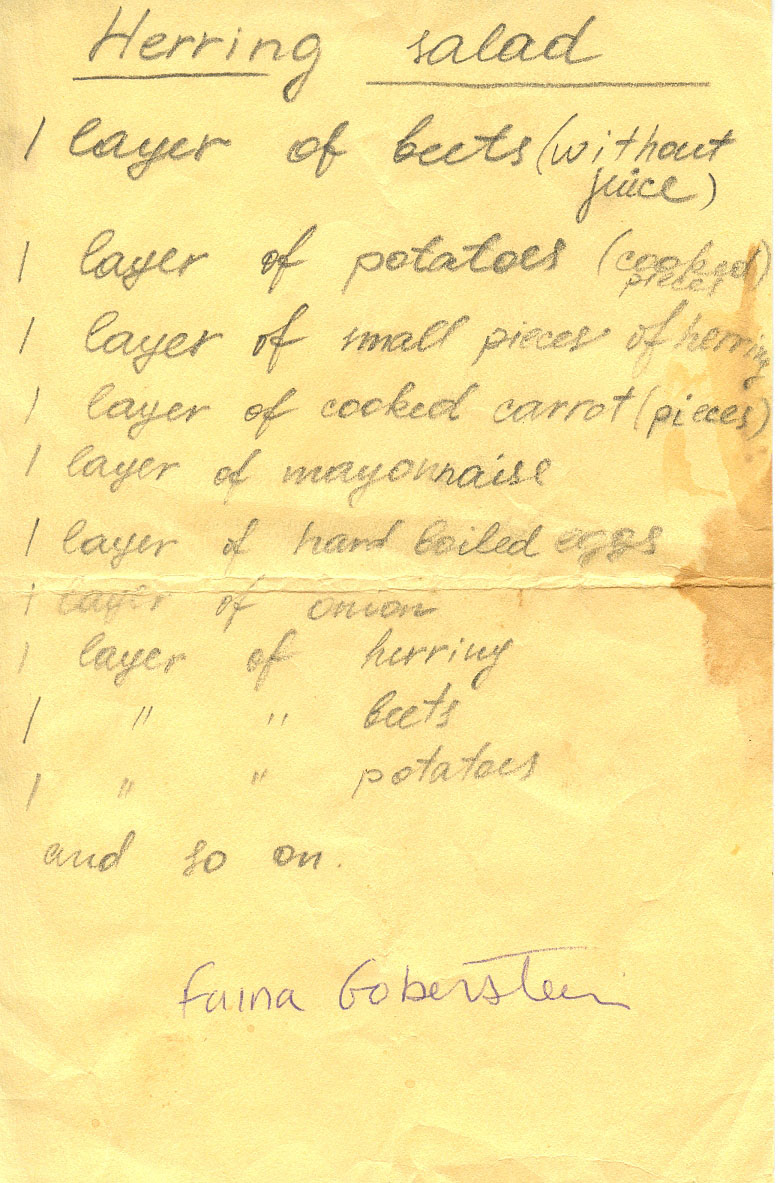 Herring salad
1 layer of beets (without
juice)
1 layer of potatoes (cooked)
pieces
1 layer of small pieces of herring
1 layer of cooked carrot (pieces)
1 layer of mayonnaise
1 layer of hard boiled eggs
1 layer of onion
1 layer of herring
1 " " beets
1 " " potatoes
and so on.
Faina Goberstein